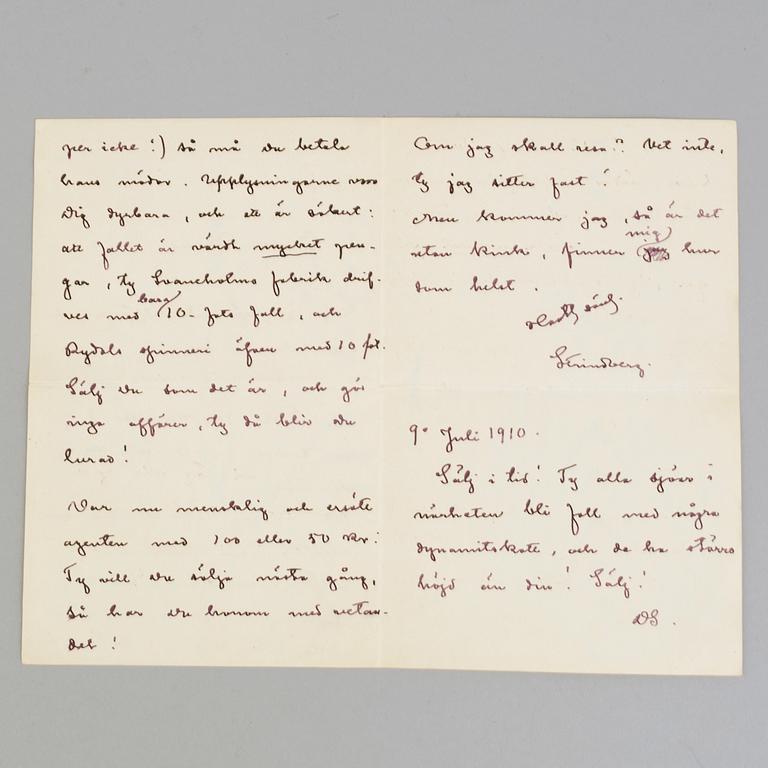 per icke!) så må du betala
hans mödor. Upplysningarne voro
Dig dyrbara, och ett är säkert:
att fallet är värdt mycket pen-
gar, ty Svaneholms fabrik drif-
ves med bara 10-fots fall, och
Rydals spinneri äfven med 10 fot.
Sälj Du som det är, och gör
inga affärer, ty då blir du
lurad!
Var nu mensklig och ersätt
agenten med 100 eller 50 Kr:
Ty vill du sälja nästa gång,
så har du honom med
det!
Om jag skall resa? Vet inte,
ty jag sitter fast!
Men kommer jag, så är det
utan kink, finner mig hur
som helst.
Strindberg.
9e Juli 1910.
Sälj i tid! Ty alla sjöar i
närheten bli fall med några
dynamitskott, och de ha större
höjd än din! Sälj!
DS.